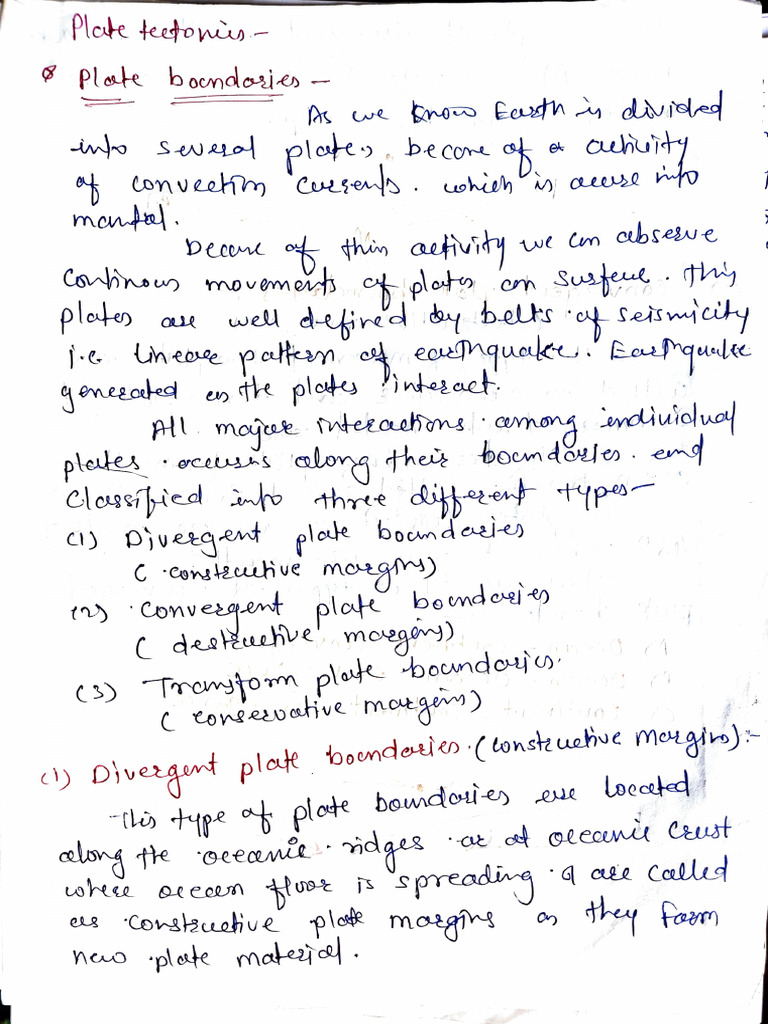 Plate tectonics -
* Plate boundaries -
As we know Earth is divided
into several plates, becare of a activity
of convection currents. which is accure into
mantal.
Decare of this activity we can observe
continous movements of plates on surface. this
plates are well defined by belts of seismicity
i.e. lineare pattern of earthquake. Earthquake
generated as the plates interact.
All major interactions among individual
plates occurs along their boundaries. and
classified into three different types -
(1) Divergent plate boundaries
( constructive margins)
(2) Convergent plate boundaries
( destructive margins)
(3) Transform plate boundaries.
( conservative margins)
(1) Divergent plate boundaries. (constructive margins):-
This type of plate boundaries are located
along the oceanic ridges or at oceanic crust
where ocean floor is spreading. & are called
as constructive plate margins as they form
new plate material.